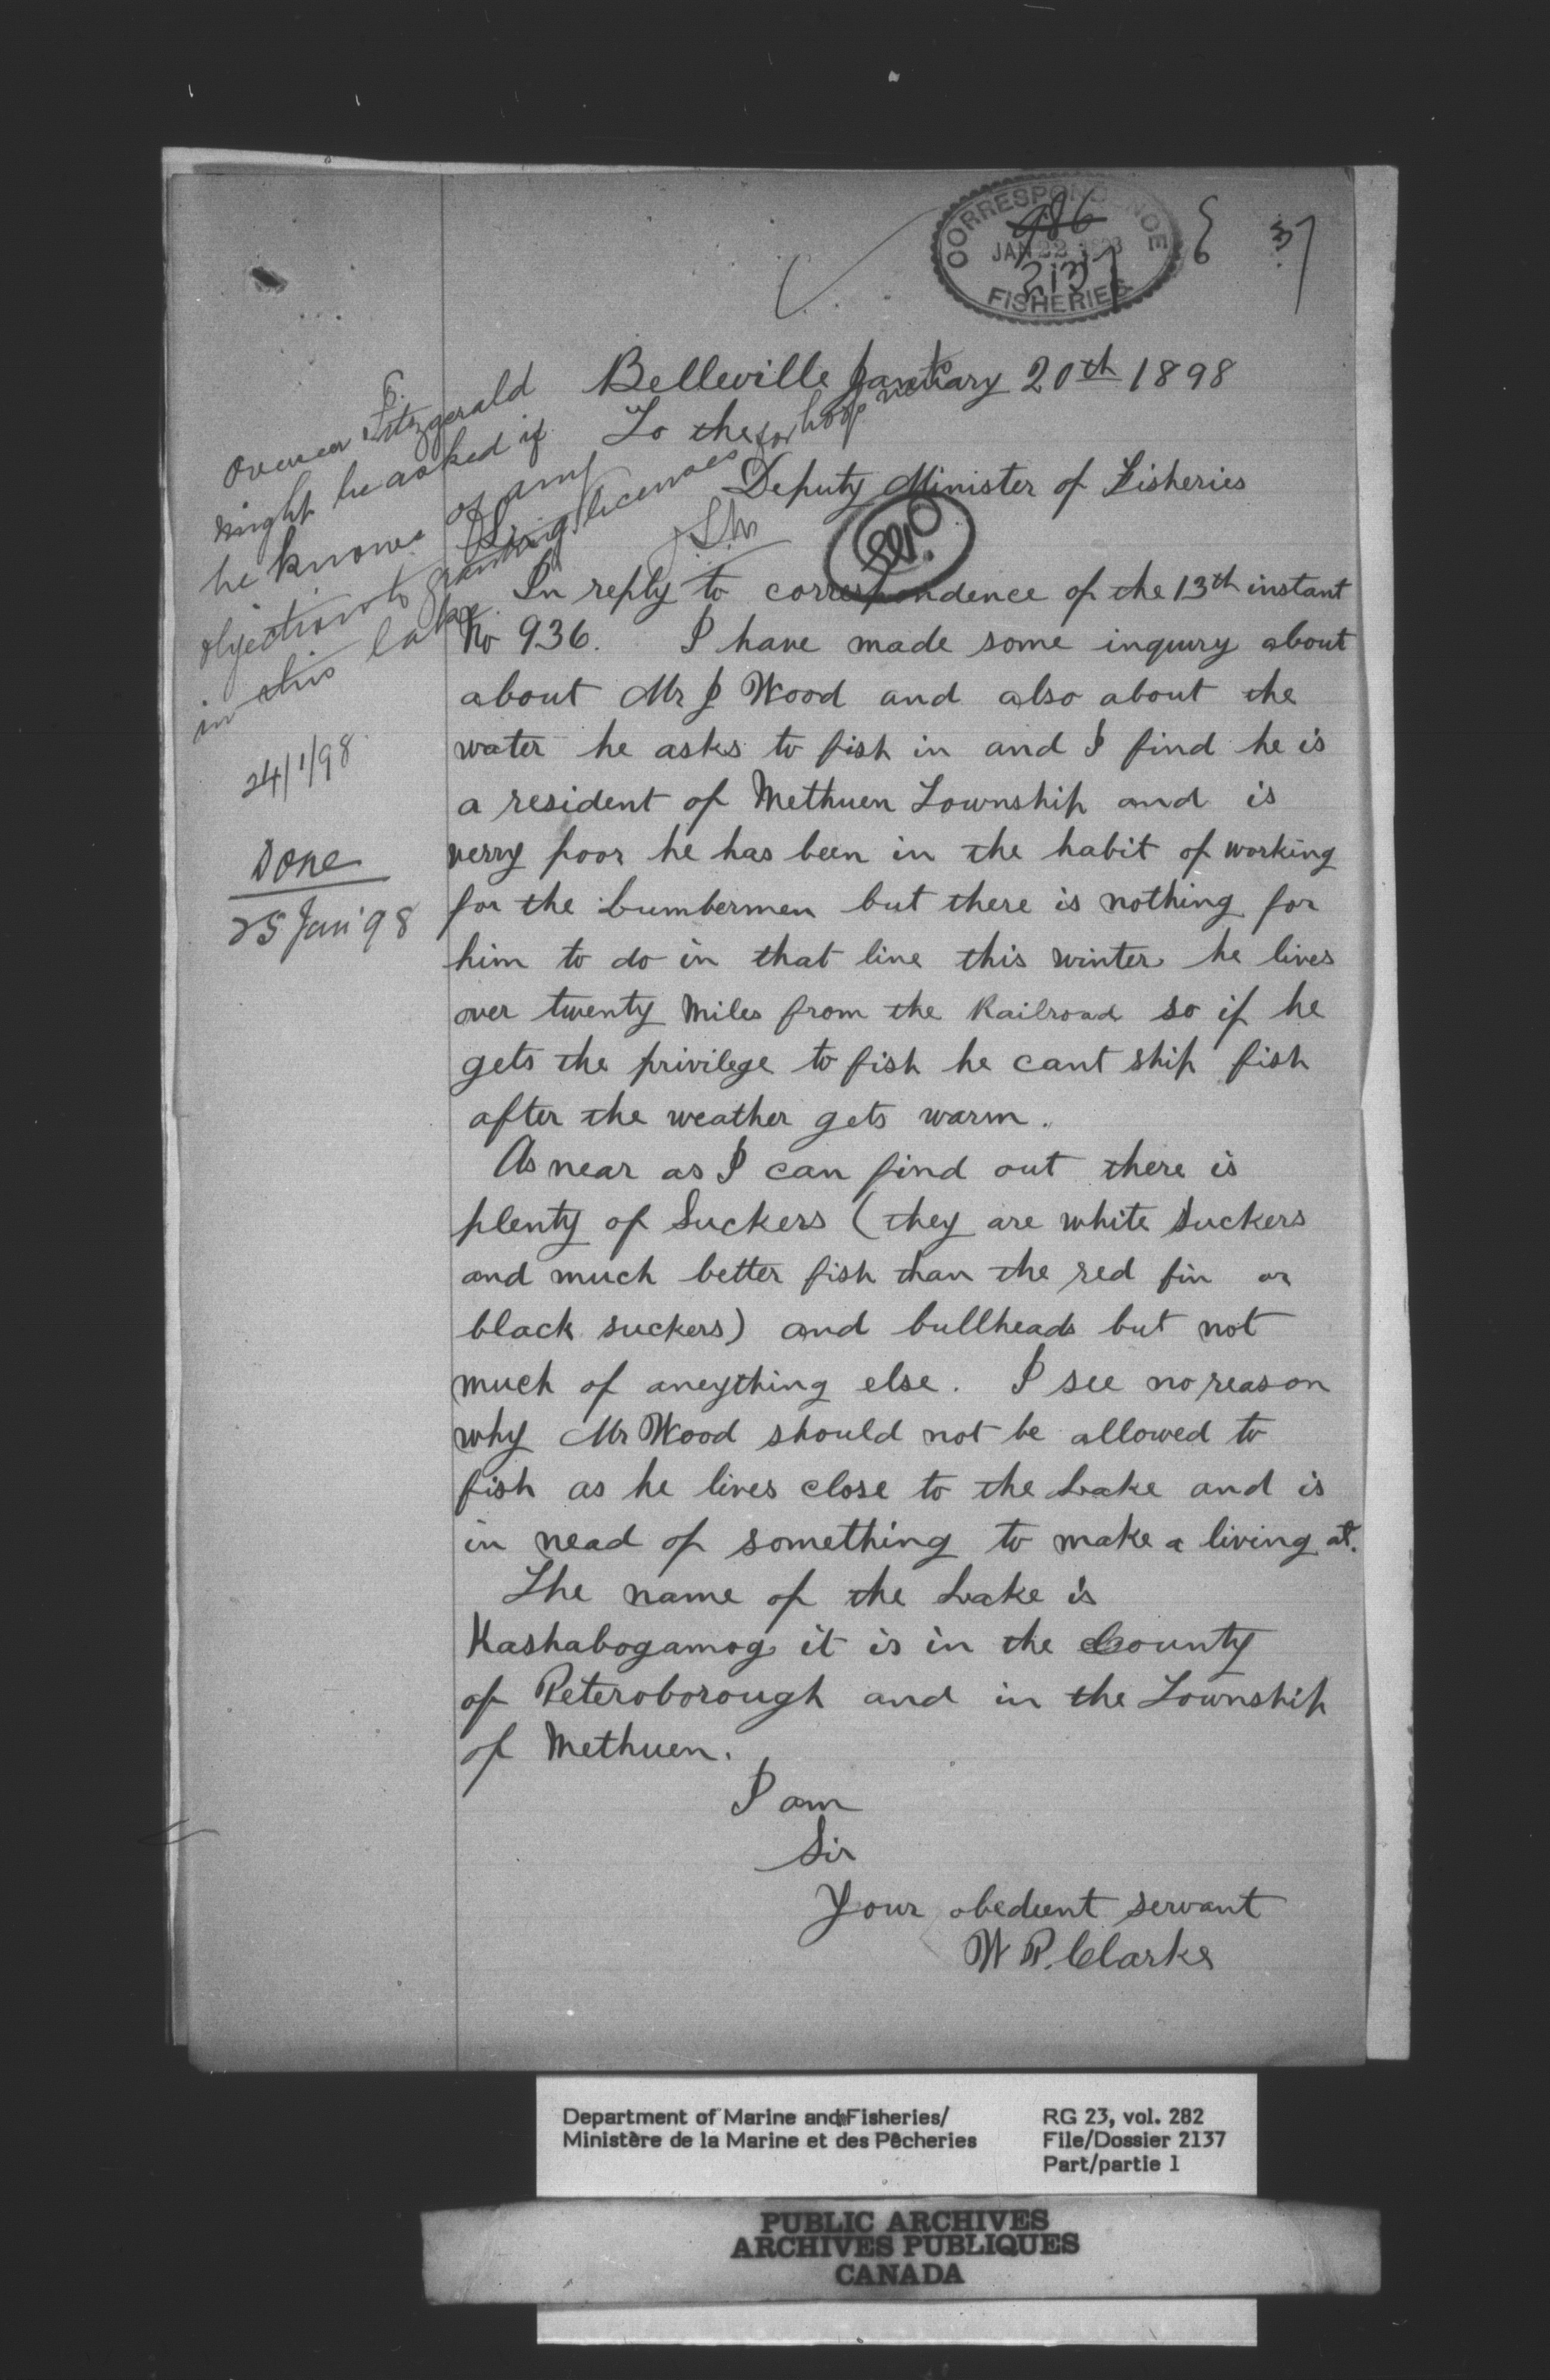 CORRESPONDENCE
986
JAN 22 1898
2137
FISHERIES
Belleville January 20th 1898
To the
Deputy Minister of Fisheries
Sir
In reply to correspondence of the 13th instant
No 936. I have made some inquiry about
about Mr J Wood and also about the
water he asks to fish in and I find he is
a resident of Methuen Township and is
verry poor he has been in the habit of working
for the Lumbermen but there is nothing for
him to do in that line this winter he lives
over twenty miles from the Railroad so if he
gets the privilege to fish he cant ship fish
after the weather gets warm.
As near as I can find out there is
plenty of Suckers (they are white Suckers
and much better fish than the red fin or
black suckers) and bullheads but not
much of aneything else. I see no reason
why Mr Wood should not be allowed to
fish as he lives close to the Lake and is
in nead of something to make a living at.
The name of the Lake is
Kashabogamog it is in the County
of Peteroborough and in the Township
of Methuen.
I am
Sir
Your obedient servant
W P. Clarke
Overseer Fitzgerald
might be asked if
he knows of any
objection to granting licenses for hoop nets
in this lake.
24/1/98
Done
25 Jan '98
Department of Marine and Fisheries/
Ministère de la Marine et des Pêcheries
RG 23, vol. 282
File/Dossier 2137
Part/partie 1
PUBLIC ARCHIVES
ARCHIVES PUBLIQUES
CANADA